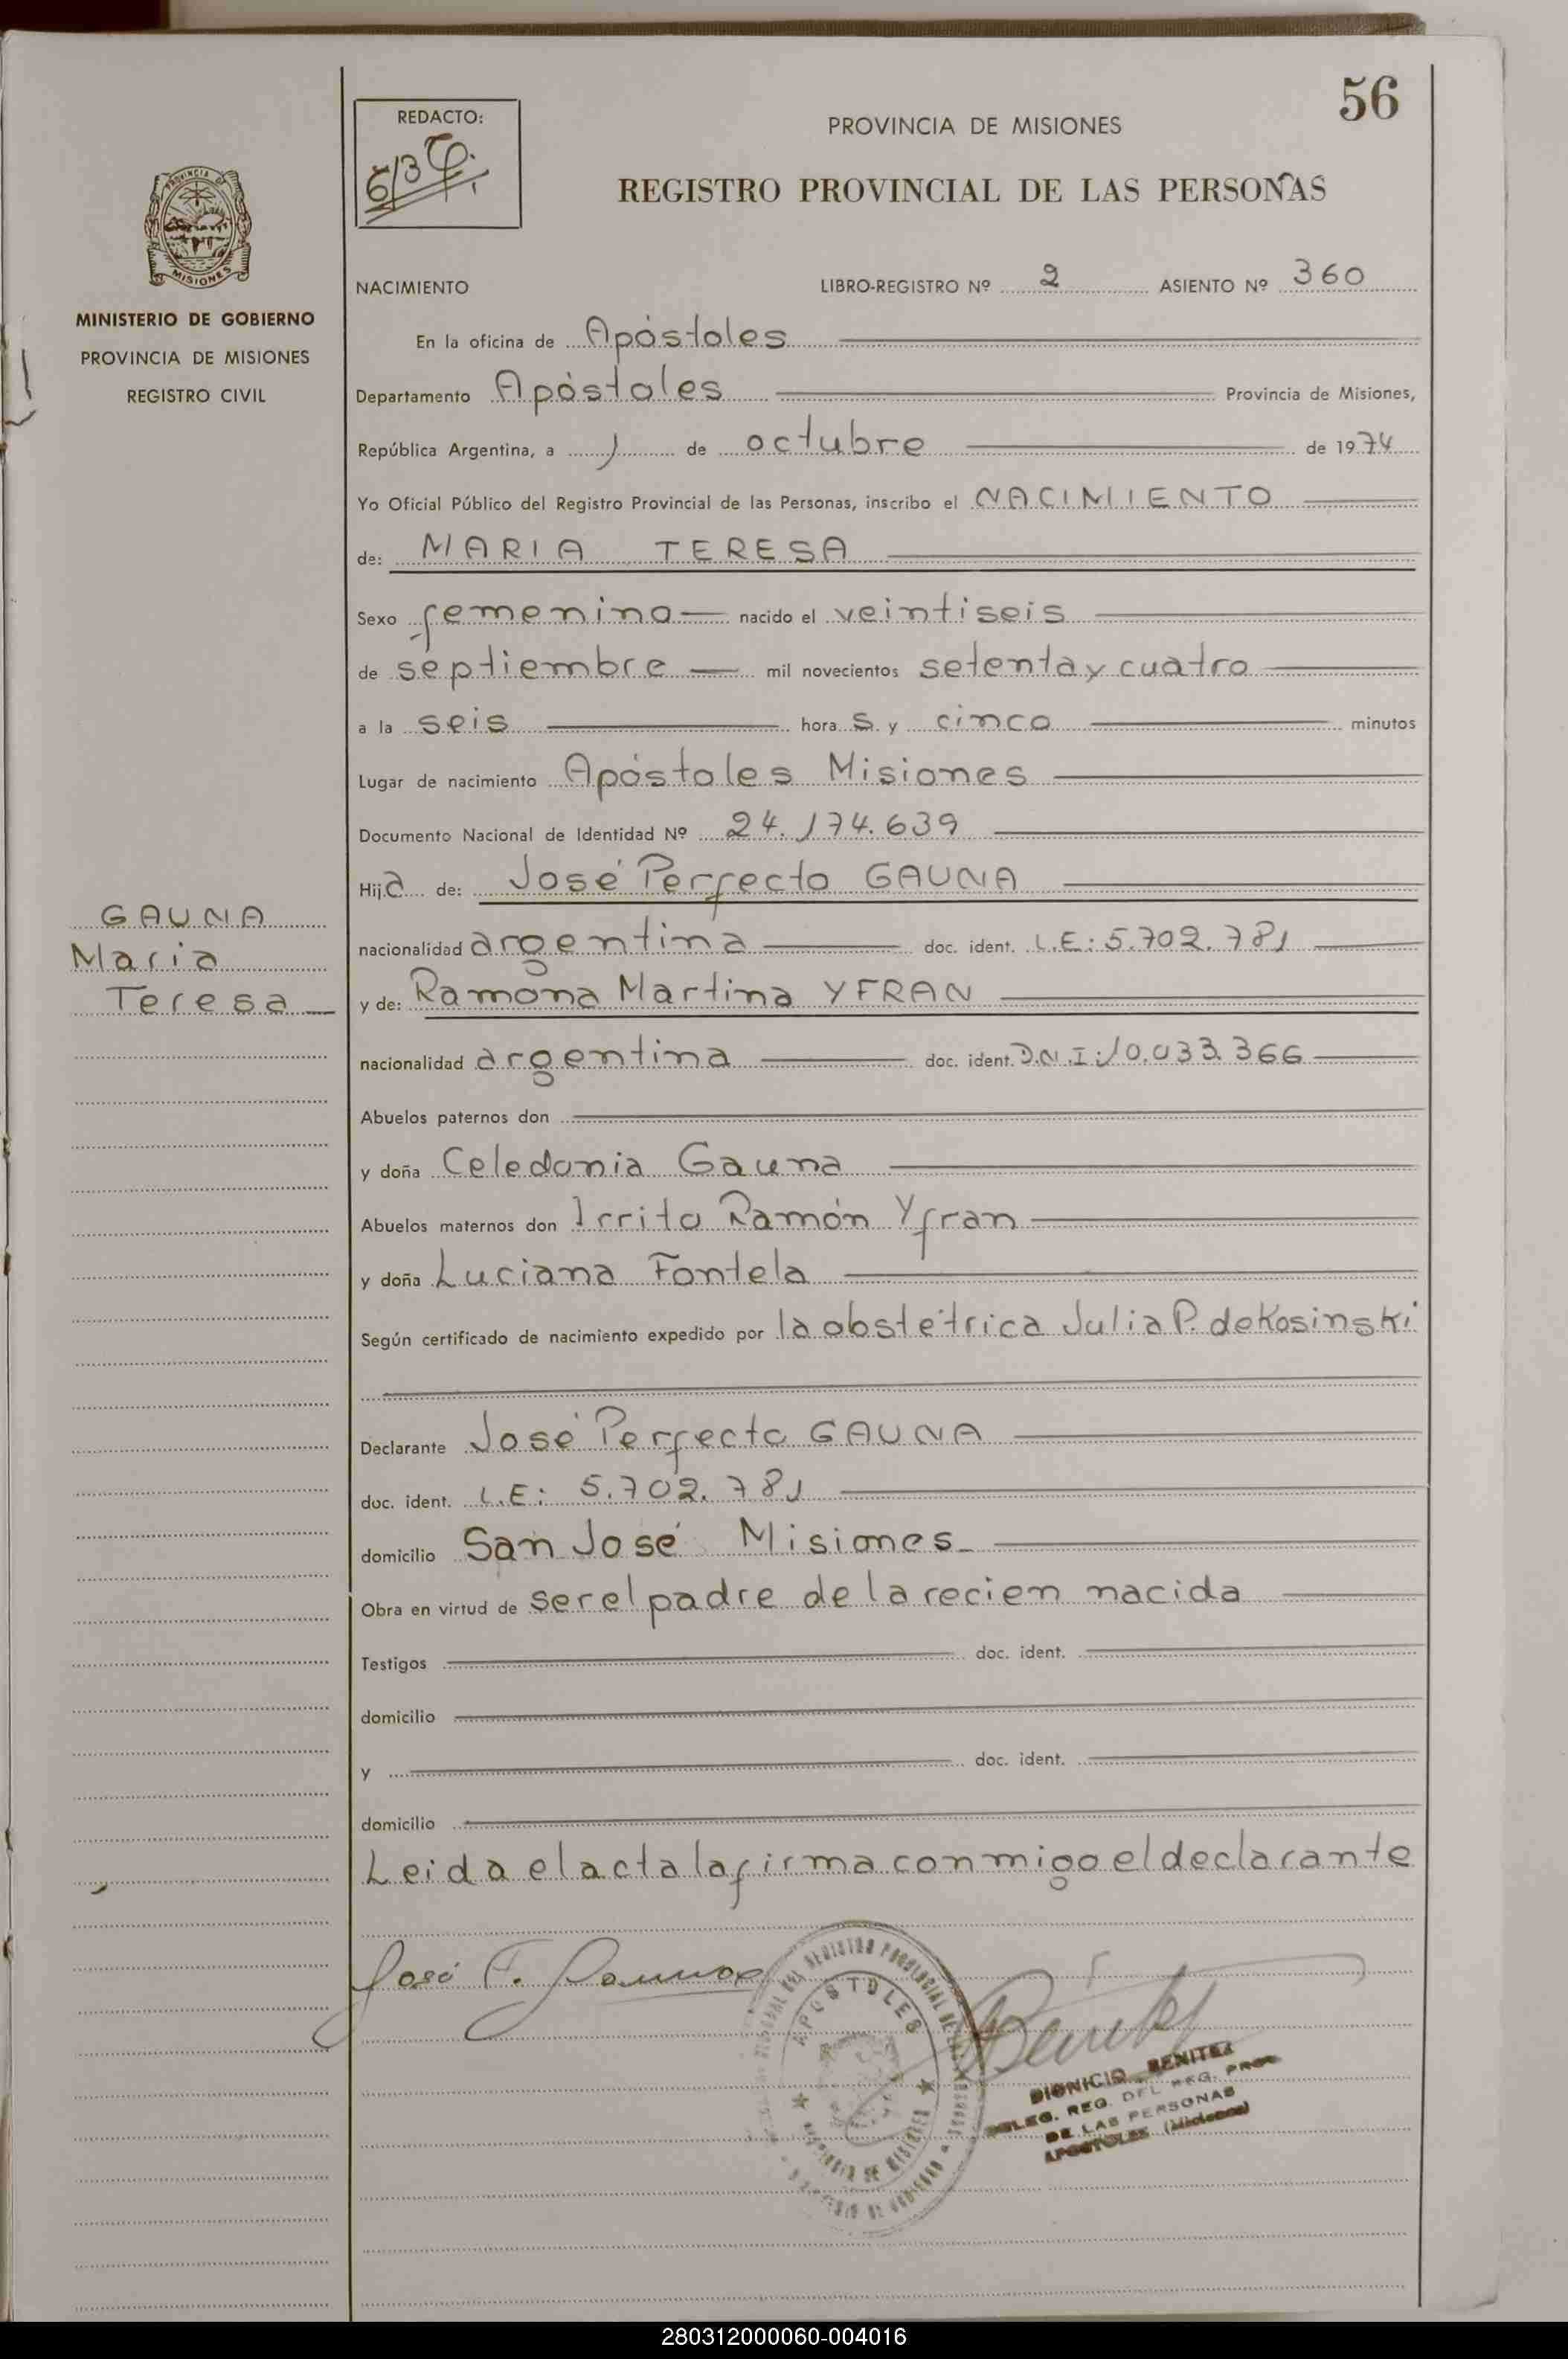 56
REDACTO:
PROVINCIA DE MISIONES
REGISTRO PROVINCIAL DE LAS PERSONAS
PROVINCIA DE
MISIONES
MINISTERIO DE GOBIERNO
PROVINCIA DE MISIONES
REGISTRO CIVIL
NACIMIENTO LIBRO-REGISTRO Nº 2 ASIENTO Nº 360
En la oficina de Apóstoles
Departamento Apóstoles Provincia de Misiones,
República Argentina, a 1 de octubre de 1974
Yo Oficial Público del Registro Provincial de las Personas, inscribo el NACIMIENTO
de: MARIA TERESA
Sexo femenino nacido el veintiseis
de septiembre mil novecientos setenta y cuatro
a la seis hora s y cinco minutos
Lugar de nacimiento Apóstoles Misiones
Documento Nacional de Identidad Nº 24.174.639
Hija de: José Perfecto GAUNA
GAUNA
Maria
Teresa
nacionalidad argentina doc. ident. L.E: 5.702.781
y de: Ramona Martina YFRAN
nacionalidad argentina doc. ident. D.N.I: 10.033.366
Abuelos paternos don
y doña Celedonia Gauna
Abuelos maternos don Irrito Ramón Yfran
y doña Luciana Fontela
Según certificado de nacimiento expedido por la obstétrica Julia P. de Kosinski
Declarante José Perfecto GAUNA
doc. ident. L.E: 5.702.781
domicilio San José Misiones
Obra en virtud de ser el padre de la recien nacida
Testigos doc. ident.
domicilio
y doc. ident.
domicilio
Leida el acta la firma conmigo el declarante
APOSTOLES
DIONICIO BENITEZ
DELEG. REG. DEL REG. PROV.
DE LAS PERSONAS
APOSTOLES (Misiones)
280312000060-004016